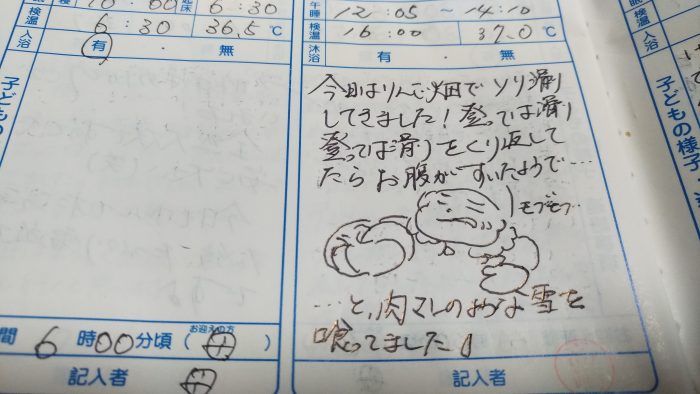 10:00
起床
6:30
検温
6:30
36.5℃
入浴
有・無
子どもの
間 6時00分頃(お迎えの方 母)
記入者
母
午睡
12:05～14:10
検温
16:00
37.0℃
沐浴
有・無
今日はりんご畑でソリ滑り
してきました!登っては滑り
登っては滑りをくり返して
たらお腹がすいたようで…
モフモフ…
…と、肉マンのような雪を
喰ってました♩
記入者
検温
入浴
子どもの様子・